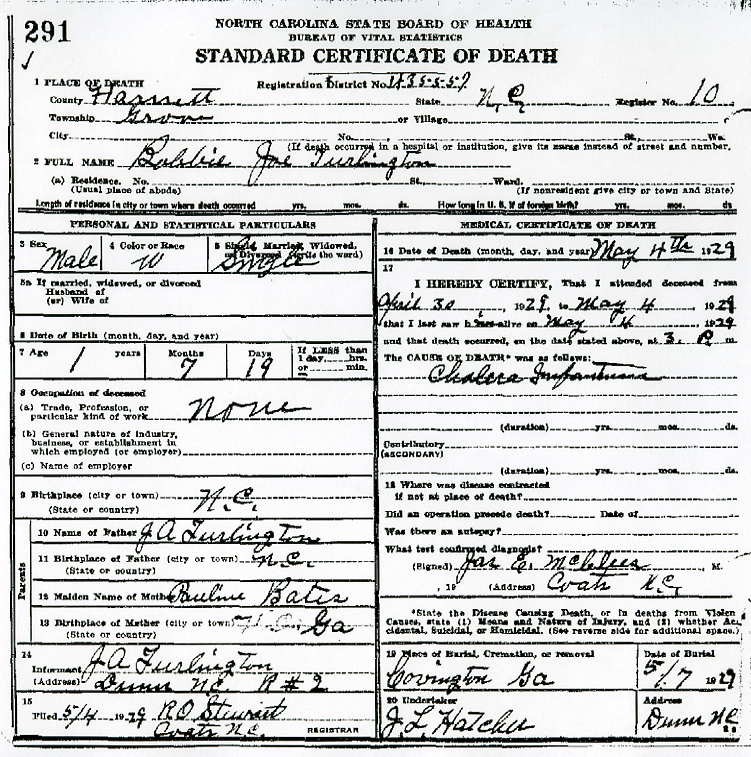 291
NORTH CAROLINA STATE BOARD OF HEALTH
BUREAU OF VITAL STATISTICS
STANDARD CERTIFICATE OF DEATH
1 PLACE OF DEATH Registration District No.
County Harnett State N.C. Register No. 10
Township Grove or Village
City No. St., Wa.
(If death occurred in a hospital or institution, give its name instead of street and number.
2 FULL NAME Bobbie Joe Turlington
(a) Residence. No. St., Ward.
(Usual place of abode) (If nonresident give city or town and State)
Length of residence in city or town where death occurred yrs. mos. ds. How long in U. S. if of foreign birth? yrs. mos. ds
PERSONAL AND STATISTICAL PARTICULARS
3 Sex 4 Color or Race 5 Single, Married, Widowed,
or Divorced (write the word)
Male W Single
5a If married, widowed, or divorced
Husband of
(or) Wife of
6 Date of Birth (month, day, and year)
7 Age 1 years Months 7 Days 19 If LESS than
1 day, hrs.
or min.
8 Occupation of deceased
(a) Trade, Profession, or
particular kind of work None
(b) General nature of industry,
business, or establishment in
which employed (or employer)
(c) Name of employer
9 Birthplace (city or town) N.C.
(State or country)
Parents
10 Name of Father J.A Turlington
11 Birthplace of Father (city or town) N.C.
(State or country)
12 Maiden Name of Mother Pauline Bates
13 Birthplace of Mother (city or town) Ga
(State or country)
14
Informant J.A Turlington
(Address) Dunn N.C. R #2
15
Filed 5/4 1929 R.O Stewart
Coats N.C. REGISTRAR
MEDICAL CERTIFICATE OF DEATH
16 Date of Death (month, day, and year) May 4th 1929
17
I HEREBY CERTIFY, That I attended deceased from
April 30, 1929, to May 4 1929
that I last saw h alive on May 4 1929
and that death occurred, on the date stated above, at 3. P m.
The CAUSE OF DEATH* was as follows:
Cholera Infantum
(duration) yrs. mos. ds.
Contributory
(SECONDARY)
(duration) yrs. mos. ds.
18 Where was disease contracted
if not at place of death?
Did an operation precede death? Date of
Was there an autopsy?
What test confirmed diagnosis?
(Signed) Jas E. M.
, 19 (Address) Coats N.C.
*State the Disease Causing Death, or in deaths from Violen
Causes, state (1) Means and Nature of Injury, and (2) whether Ac
cidental, Suicidal, or Homicidal. (See reverse side for additional space.)
19 Place of Burial, Cremation, or removal Date of Burial
Covington Ga 5/7 1929
20 Undertaker Address
J. L. Hatcher Dunn N C